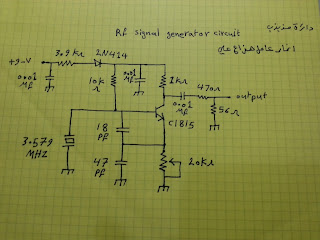 Rf signal generator circuit
دائرة مذبذب
+9-V
3.9 kΩ
2N414
0.01
Mf
10k
Ω
0.01
Mf
1kΩ
470Ω
output
0.001
Mf
56Ω
C1815
3.579
MHZ
18
Pf
47
Pf
20kΩ